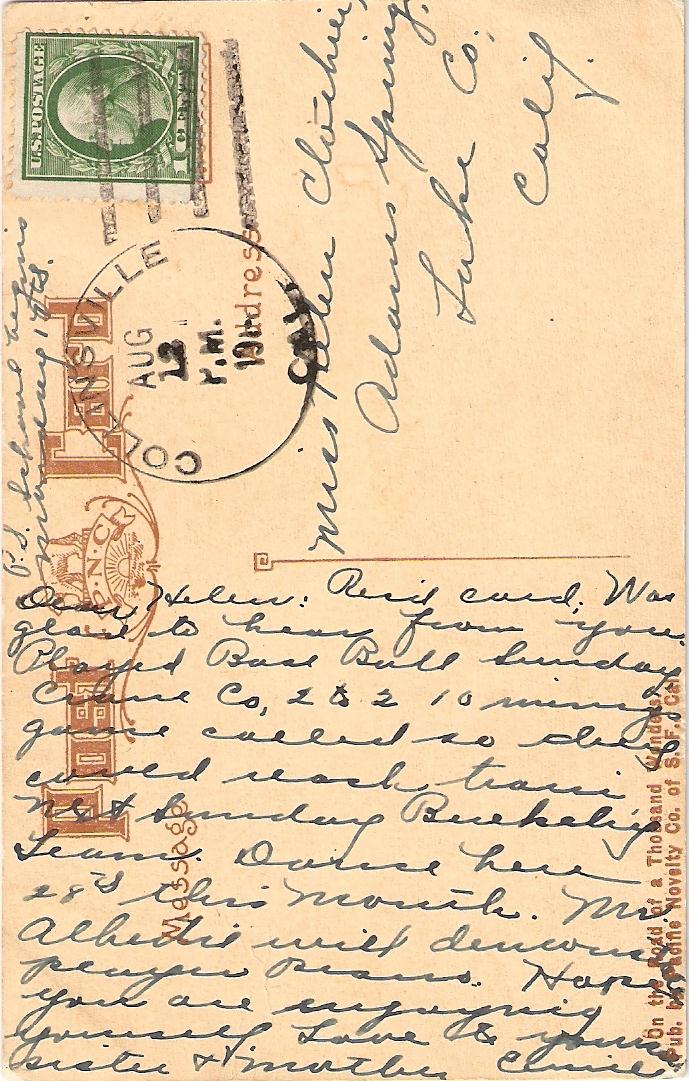 U.S. POSTAGE
1 CENT
COLLINSVILLE
AUG
12
P.M.
191
CAL.
POST CARD
P.N.C
Address
Message
Miss Helen
Adams Springs
Lake Co.
Calif.
Dear Helen: Rec'd card. Was
glad to hear from you.
Played Base Ball Sunday
Crane Co, 2 to 2 10 innings
game called so they
could reach train.
Next Sunday Berkeley
Team. Dance here
28th this Month. Mr.
will demonst
player piano. Hope
you are enjoying
yourself Love to your
sister & mother
P.S. School begins
Monday 18th.
On the Road of a Thousand Wonders.
Pub. by Pacific Novelty Co. of S.F., Cal.